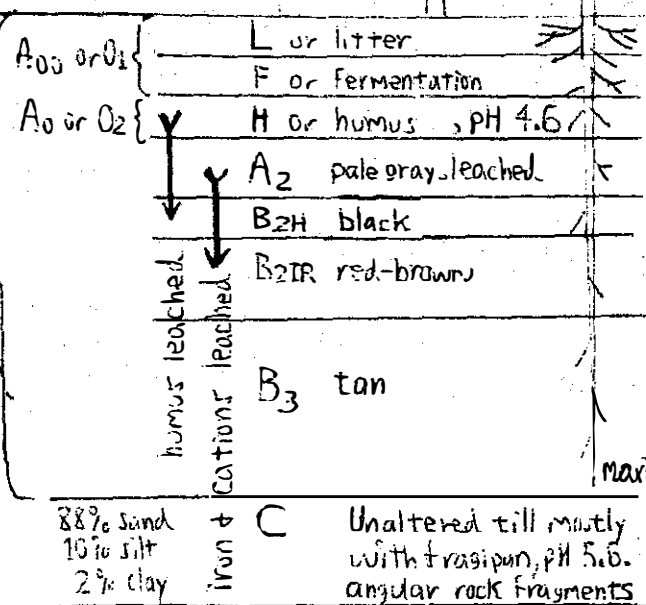 A00 or O1
L or litter
F or fermentation
A0 or O2
H or humus , pH 4.6
A2 pale gray, leached
B2H black
B2IR red-brown
B3 tan
humus leached
iron & cations leached
88% sand
10% silt
2% clay
C Unaltered till mostly
with fragipan, pH
angular rock fragments